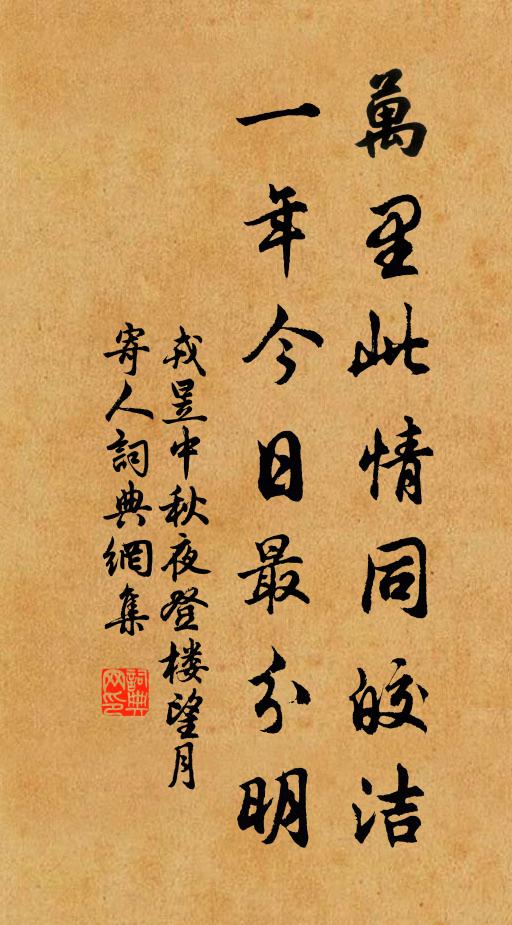 萬里此情同皎洁
一年今日最分明
戎昱中秋夜登楼望月
寄人詞典網集
詞典
网印